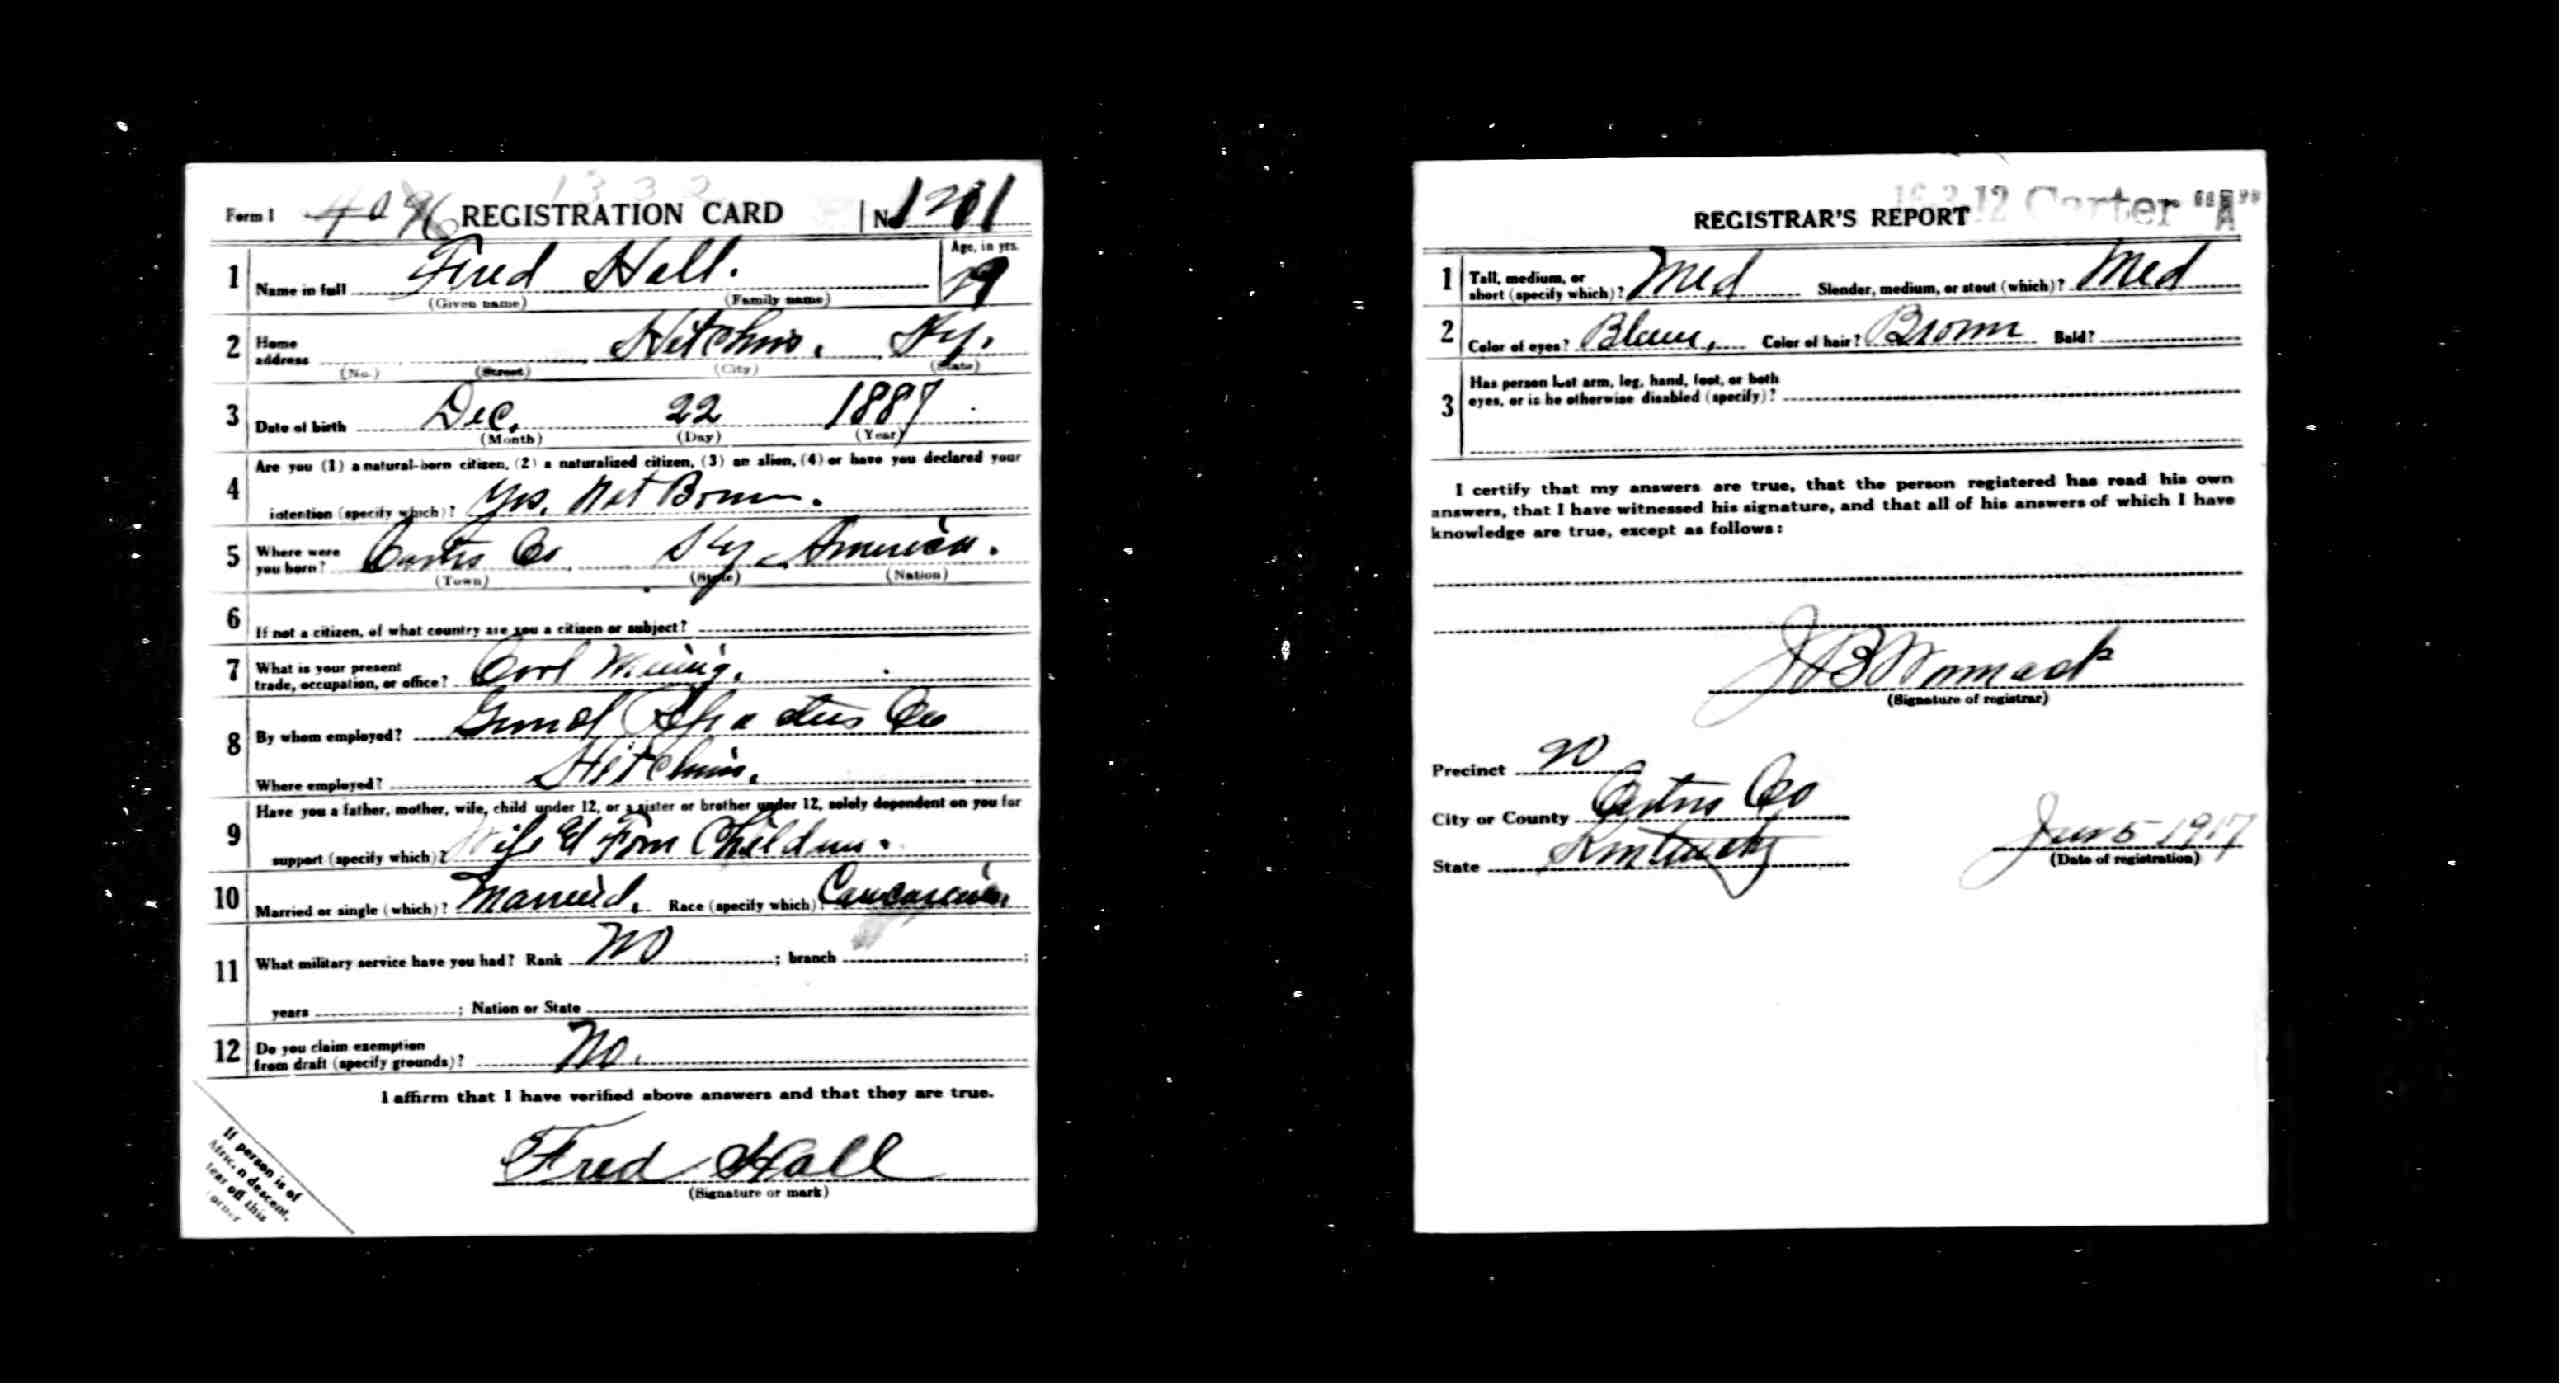 Form 1 4096 REGISTRATION CARD No 1201
1 Name in full Fred Hall. Age, in yrs. 29
(Given name) (Family name)
2 Home address Hitchins, Ky.
(No.) (Street) (City) (State)
3 Date of birth Dec. 22 1887
(Month) (Day) (Year)
4 Are you (1) a natural-born citizen, (2) a naturalized citizen, (3) an alien, (4) or have you declared your
intention (specify which)? Yes, Nat Born.
5 Where were you born? Carter Co Ky America.
(Town) (State) (Nation)
6 If not a citizen, of what country are you a citizen or subject?
7 What is your present trade, occupation, or office? Coal Mining.
8 By whom employed? Refractories Co
Where employed? Hitchins.
9 Have you a father, mother, wife, child under 12, or a sister or brother under 12, solely dependent on you for
support (specify which)? Wife & Four Children.
10 Married or single (which)? Married. Race (specify which)? Caucasian
11 What military service have you had? Rank No ; branch ;
years ; Nation or State
12 Do you claim exemption from draft (specify grounds)? No.
I affirm that I have verified above answers and that they are true.
Fred Hall
(Signature or mark)
If person is of
African descent,
tear off this
corner
16-3-12 Carter "A"
REGISTRAR'S REPORT
1 Tall, medium, or short (specify which)? Med Slender, medium, or stout (which)? Med
2 Color of eyes? Blue, Color of hair? Brown Bald?
3 Has person lost arm, leg, hand, foot, or both
eyes, or is he otherwise disabled (specify)?
I certify that my answers are true, that the person registered has read his own
answers, that I have witnessed his signature, and that all of his answers of which I have
knowledge are true, except as follows:
J B Womack
(Signature of registrar)
Precinct 20
City or County Carter Co
State Kentucky
Jun 5 1917
(Date of registration)